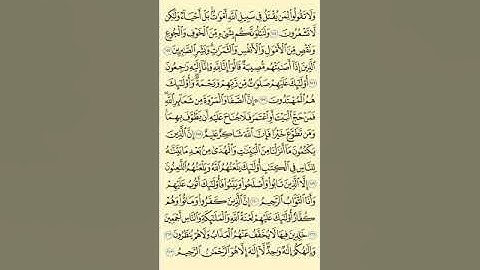 وَلَا تَقُولُوا۟ لِمَن يُقْتَلُ فِى سَبِيلِ ٱللَّهِ أَمْوَٰتٌۢ ۚ بَلْ أَحْيَآءٌ وَلَٰكِن
لَّا تَشْعُرُونَ ١٥٤ وَلَنَبْلُوَنَّكُم بِشَىْءٍ مِّنَ ٱلْخَوْفِ وَٱلْجُوعِ
وَنَقْصٍ مِّنَ ٱلْأَمْوَٰلِ وَٱلْأَنفُسِ وَٱلثَّمَرَٰتِ ۗ وَبَشِّرِ ٱلصَّٰبِرِينَ ١٥٥
ٱلَّذِينَ إِذَآ أَصَٰبَتْهُم مُّصِيبَةٌ قَالُوٓا۟ إِنَّا لِلَّهِ وَإِنَّآ إِلَيْهِ رَٰجِعُونَ
١٥٦ أُو۟لَٰٓئِكَ عَلَيْهِمْ صَلَوَٰتٌ مِّن رَّبِّهِمْ وَرَحْمَةٌ ۖ وَأُو۟لَٰٓئِكَ
هُمُ ٱلْمُهْتَدُونَ ١٥٧ ۞ إِنَّ ٱلصَّفَا وَٱلْمَرْوَةَ مِن شَعَآئِرِ ٱللَّهِ ۖ
فَمَنْ حَجَّ ٱلْبَيْتَ أَوِ ٱعْتَمَرَ فَلَا جُنَاحَ عَلَيْهِ أَن يَطَّوَّفَ بِهِمَا ۚ
وَمَن تَطَوَّعَ خَيْرًا فَإِنَّ ٱللَّهَ شَاكِرٌ عَلِيمٌ ١٥٨ إِنَّ ٱلَّذِينَ
يَكْتُمُونَ مَآ أَنزَلْنَا مِنَ ٱلْبَيِّنَٰتِ وَٱلْهُدَىٰ مِنۢ بَعْدِ مَا بَيَّنَّٰهُ
لِلنَّاسِ فِى ٱلْكِتَٰبِ ۙ أُو۟لَٰٓئِكَ يَلْعَنُهُمُ ٱللَّهُ وَيَلْعَنُهُمُ ٱللَّٰعِنُونَ
١٥٩ إِلَّا ٱلَّذِينَ تَابُوا۟ وَأَصْلَحُوا۟ وَبَيَّنُوا۟ فَأُو۟لَٰٓئِكَ أَتُوبُ عَلَيْهِمْ ۚ
وَأَنَا ٱلتَّوَّابُ ٱلرَّحِيمُ ١٦٠ إِنَّ ٱلَّذِينَ كَفَرُوا۟ وَمَاتُوا۟ وَهُمْ
كُفَّارٌ أُو۟لَٰٓئِكَ عَلَيْهِمْ لَعْنَةُ ٱللَّهِ وَٱلْمَلَٰٓئِكَةِ وَٱلنَّاسِ أَجْمَعِينَ
١٦١ خَٰلِدِينَ فِيهَا ۖ لَا يُخَفَّفُ عَنْهُمُ ٱلْعَذَابُ وَلَا هُمْ يُنظَرُونَ
١٦٢ وَإِلَٰهُكُمْ إِلَٰهٌ وَٰحِدٌ ۖ لَّآ إِلَٰهَ إِلَّا هُوَ ٱلرَّحْمَٰنُ ٱلرَّحِيمُ ١٦٣